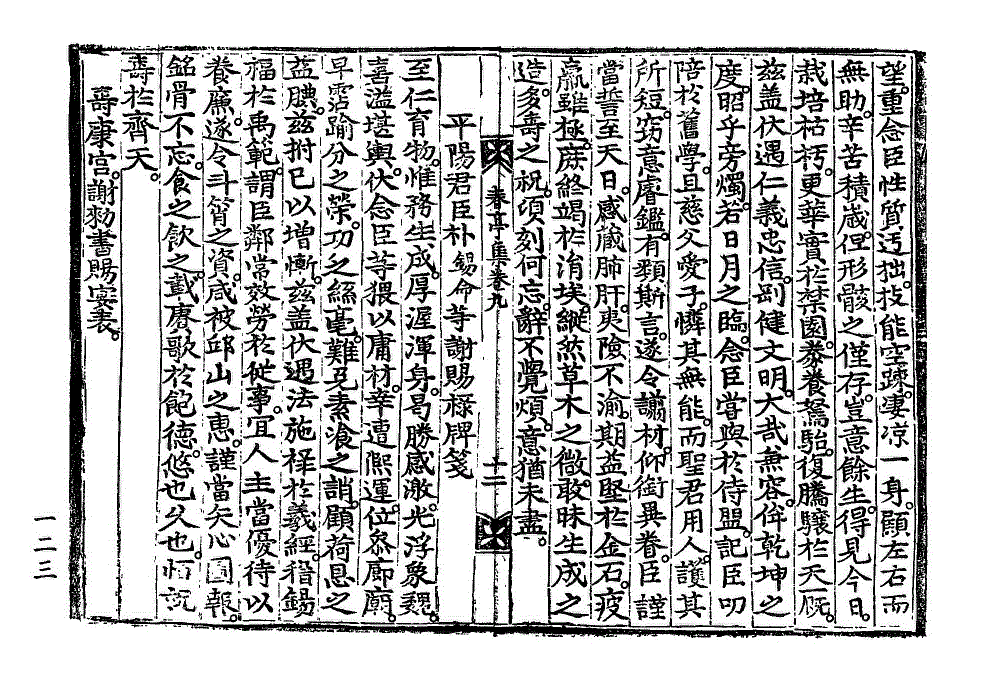 望。重念臣性質迂拙。技能空踈。凄凉一身。顧左右而
無助。辛苦積歲。俚形骸之僅存。豈意餘生。得見今日。
栽培枯朽。更華實於禁園。豢養駑駘。復騰驤於天厩。
玆盖伏遇仁義忠信。剛健文明。大哉兼容。侔乾坤之
度。昭乎旁燭。若日月之臨。念臣嘗與於侍盟。記臣叨
陪於舊學。且慈父愛子。憐其無能。而聖君用人。護其
所短。窃意睿鑑。有類斯言。遂令譾材。仰衘異眷。臣謹
當誓至天日。感蔵肺肝。夷險不渝。期益堅於金石。疲
羸雖極。庶終竭於涓埃。縱然草木之微。敢昧生成之
造。多壽之祝。頃刻何忘。辭不覺煩。意猶未盡。
春亭集卷九
十二
平陽君臣朴錫命等謝賜祿牌箋
至仁育物。惟務生成。厚渥渾身。曷勝感激。光浮象魏。
喜溢堪輿。伏念臣等猥以庸材。幸遭熙運。位叅廊廟。
早霑踰分之榮。功乏絲毫。難免素飡之誚。顧荷恩之
益腆。玆拊己以增慚。玆盖伏遇法施祿於羲經。稽錫
福於禹範。謂臣鄰當效勞於從事。宜人主當優待以
養廉。遂令斗筲之資。咸被邱山之惠。謹當矢心圖報。
銘骨不忘。食之飮之。載賡歌於飽德。悠也久也。恒祝
壽於齊天。
壽康宮。謝勑書賜宴表。
一二三